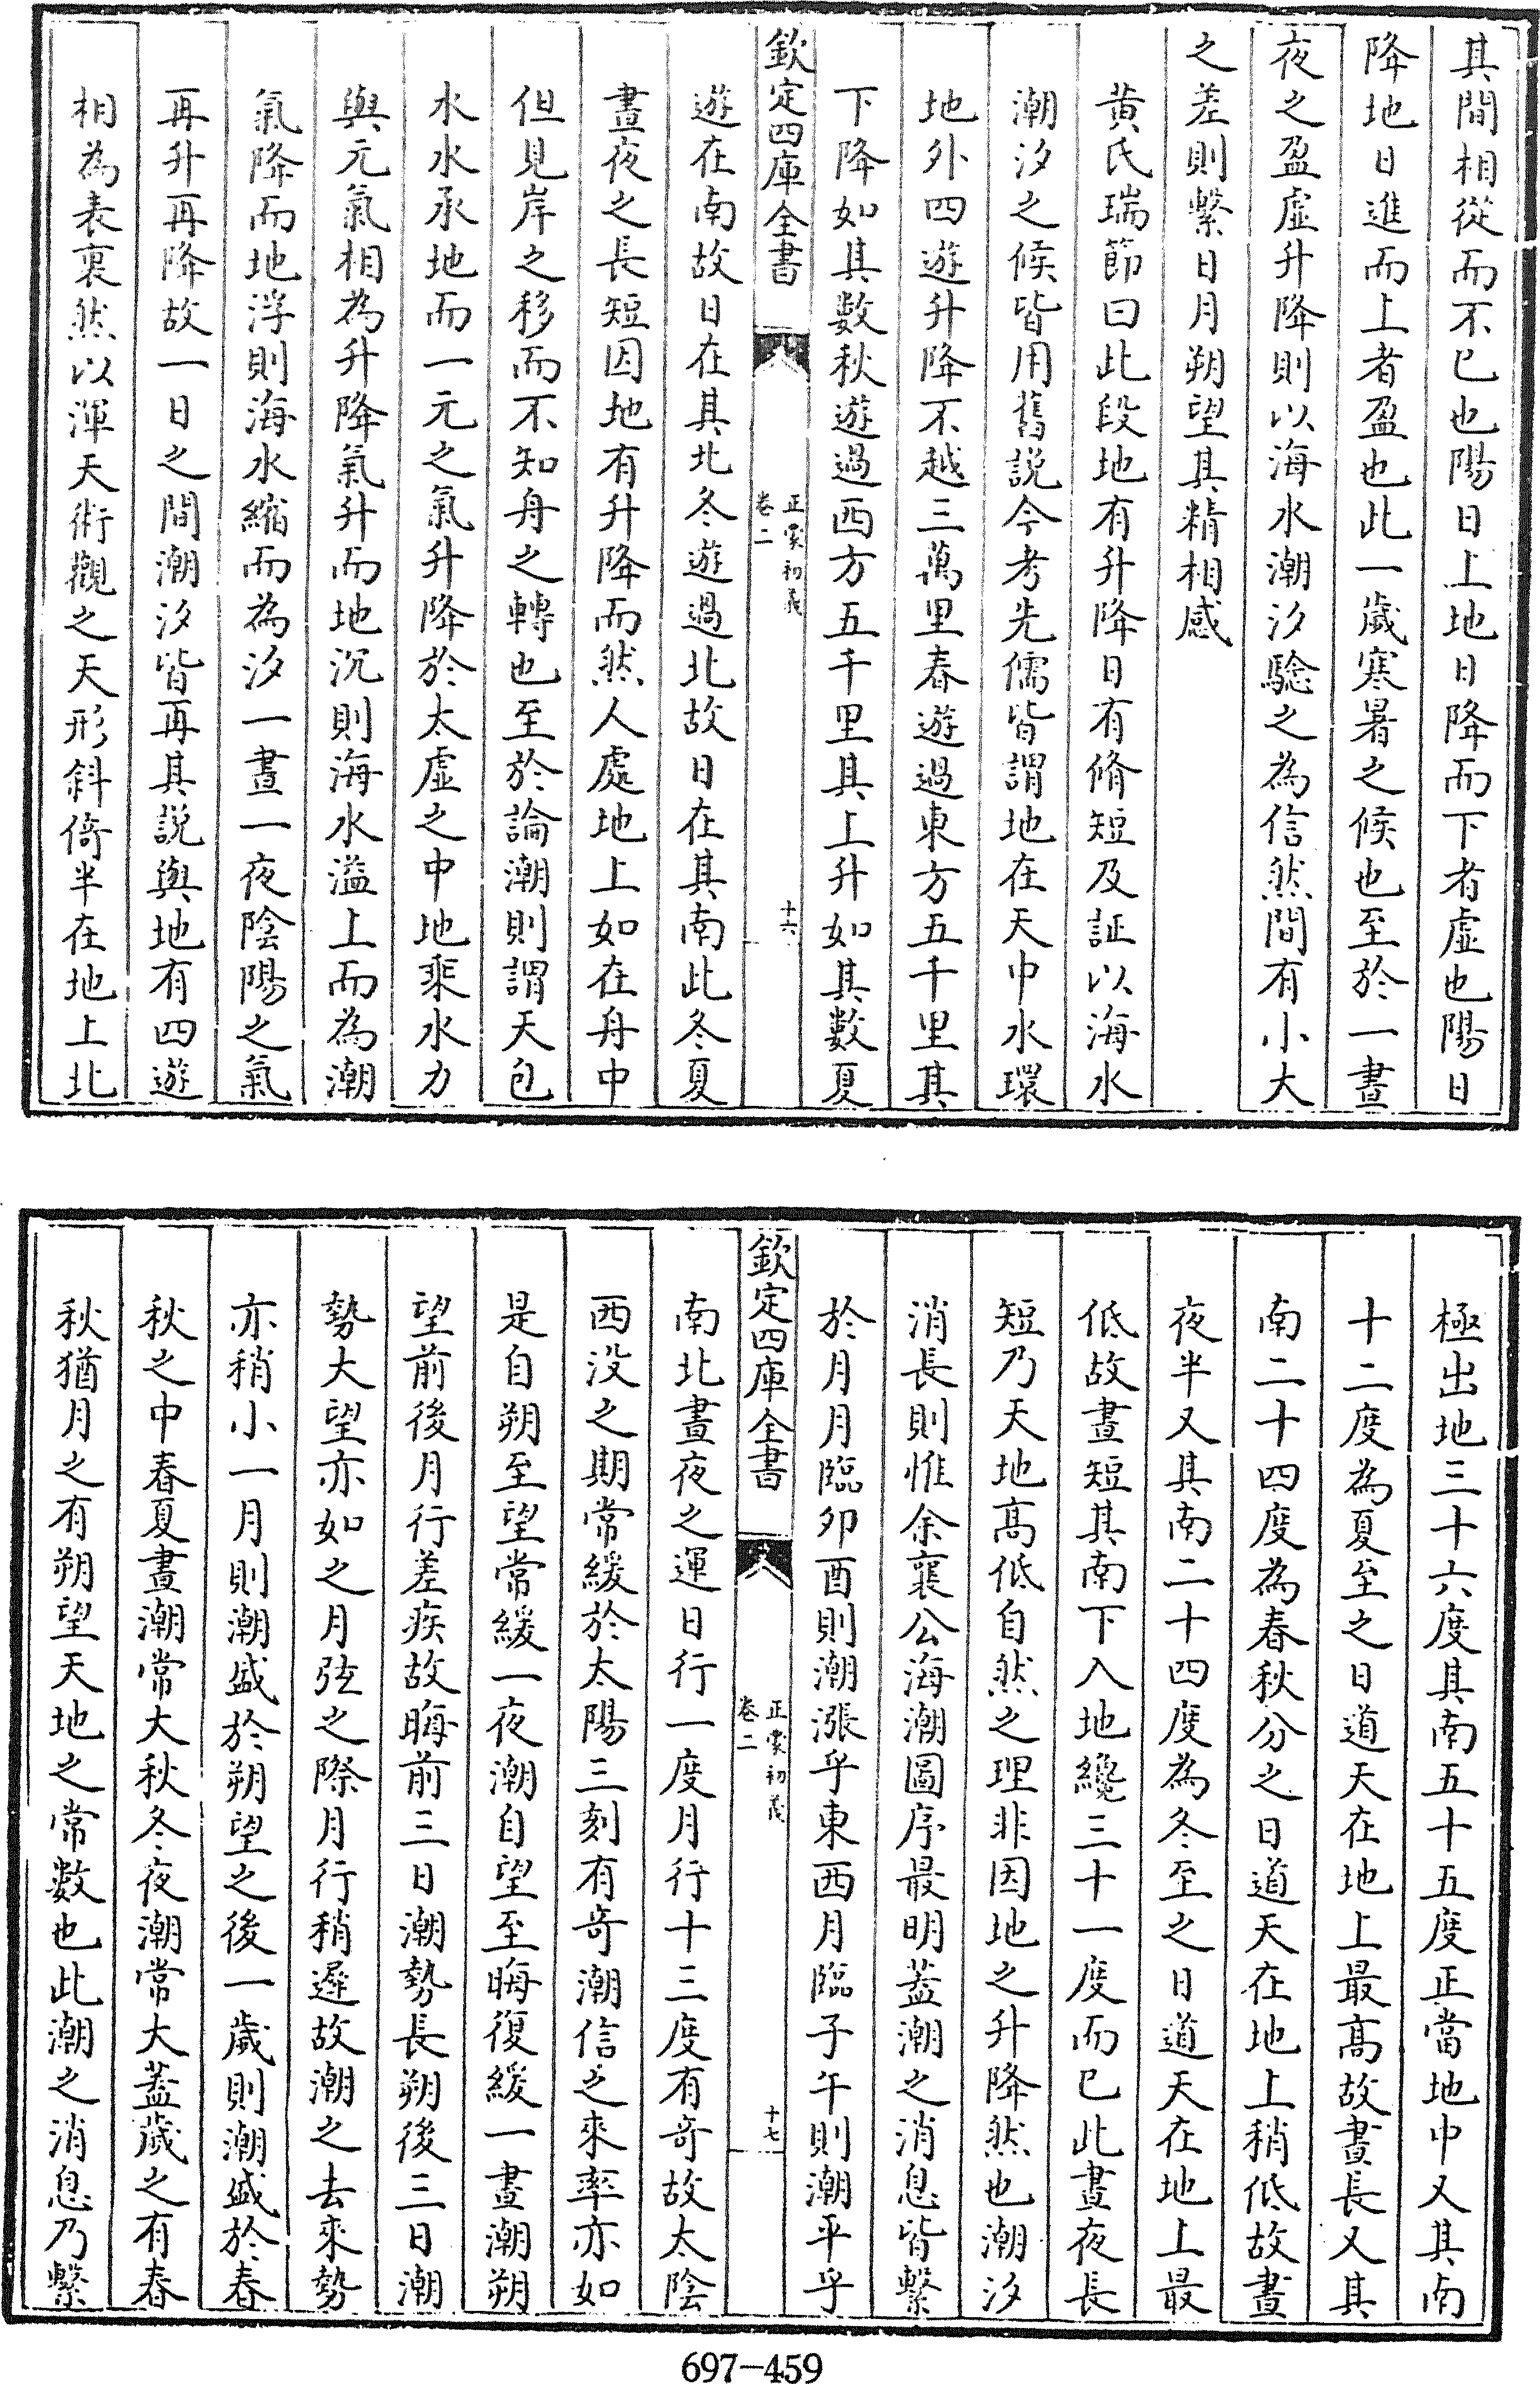 其間相從而不已也陽日上地日降而下者虛也陽日
降地日進而上者盈也此一歲寒暑之候也至於一晝
夜之盈虛升降則以海水潮汐驗之為信然間有小大
之差則繫日月朔望其精相感
黄氏瑞節曰此段地有升降日有脩短及証以海水
潮汐之候皆用舊説今考先儒皆謂地在天中水環
地外四遊升降不越三萬里春遊過東方五千里其
下降如其數秋遊過西方五千里其上升如其數夏
欽定四庫全書
正蒙初義
卷二
十六
遊在南故日在其北冬遊過北故日在其南此冬夏
晝夜之長短因地有升降而然人處地上如在舟中
但見岸之移而不知舟之轉也至於論潮則謂天包
水水承地而一元之氣升降於太虛之中地乘水力
與元氣相為升降氣升而地沉則海水溢上而為潮
氣降而地浮則海水縮而為汐一晝一夜陰陽之氣
再升再降故一日之間潮汐皆再其説與地有四遊
相為表裏然以渾天術觀之天形斜倚半在地上北
極出地三十六度其南五十五度正當地中又其南
十二度為夏至之日道天在地上最高故晝長又其
南二十四度為春秋分之日道天在地上稍低故晝
夜半又其南二十四度為冬至之日道天在地上最
低故晝短其南下入地纔三十一度而已此晝夜長
短乃天地高低自然之理非因地之升降然也潮汐
消長則惟余襄公海潮圖序最明蓋潮之消息皆繫
於月月臨卯酉則潮漲乎東西月臨子午則潮平乎
欽定四庫全書
正蒙初義
卷二
十七
南北晝夜之運日行一度月行十三度有奇故太陰
西没之期常緩於太陽三刻有奇潮信之來率亦如
是自朔至望常緩一夜潮自望至晦復緩一晝潮朔
望前後月行差疾故晦前三日潮勢長朔後三日潮
勢大望亦如之月弦之際月行稍遲故潮之去來勢
亦稍小一月則潮盛於朔望之後一歲則潮盛於春
秋之中春夏晝潮常大秋冬夜潮常大蓋歲之有春
秋猶月之有朔望天地之常數也此潮之消息乃繫
697-459